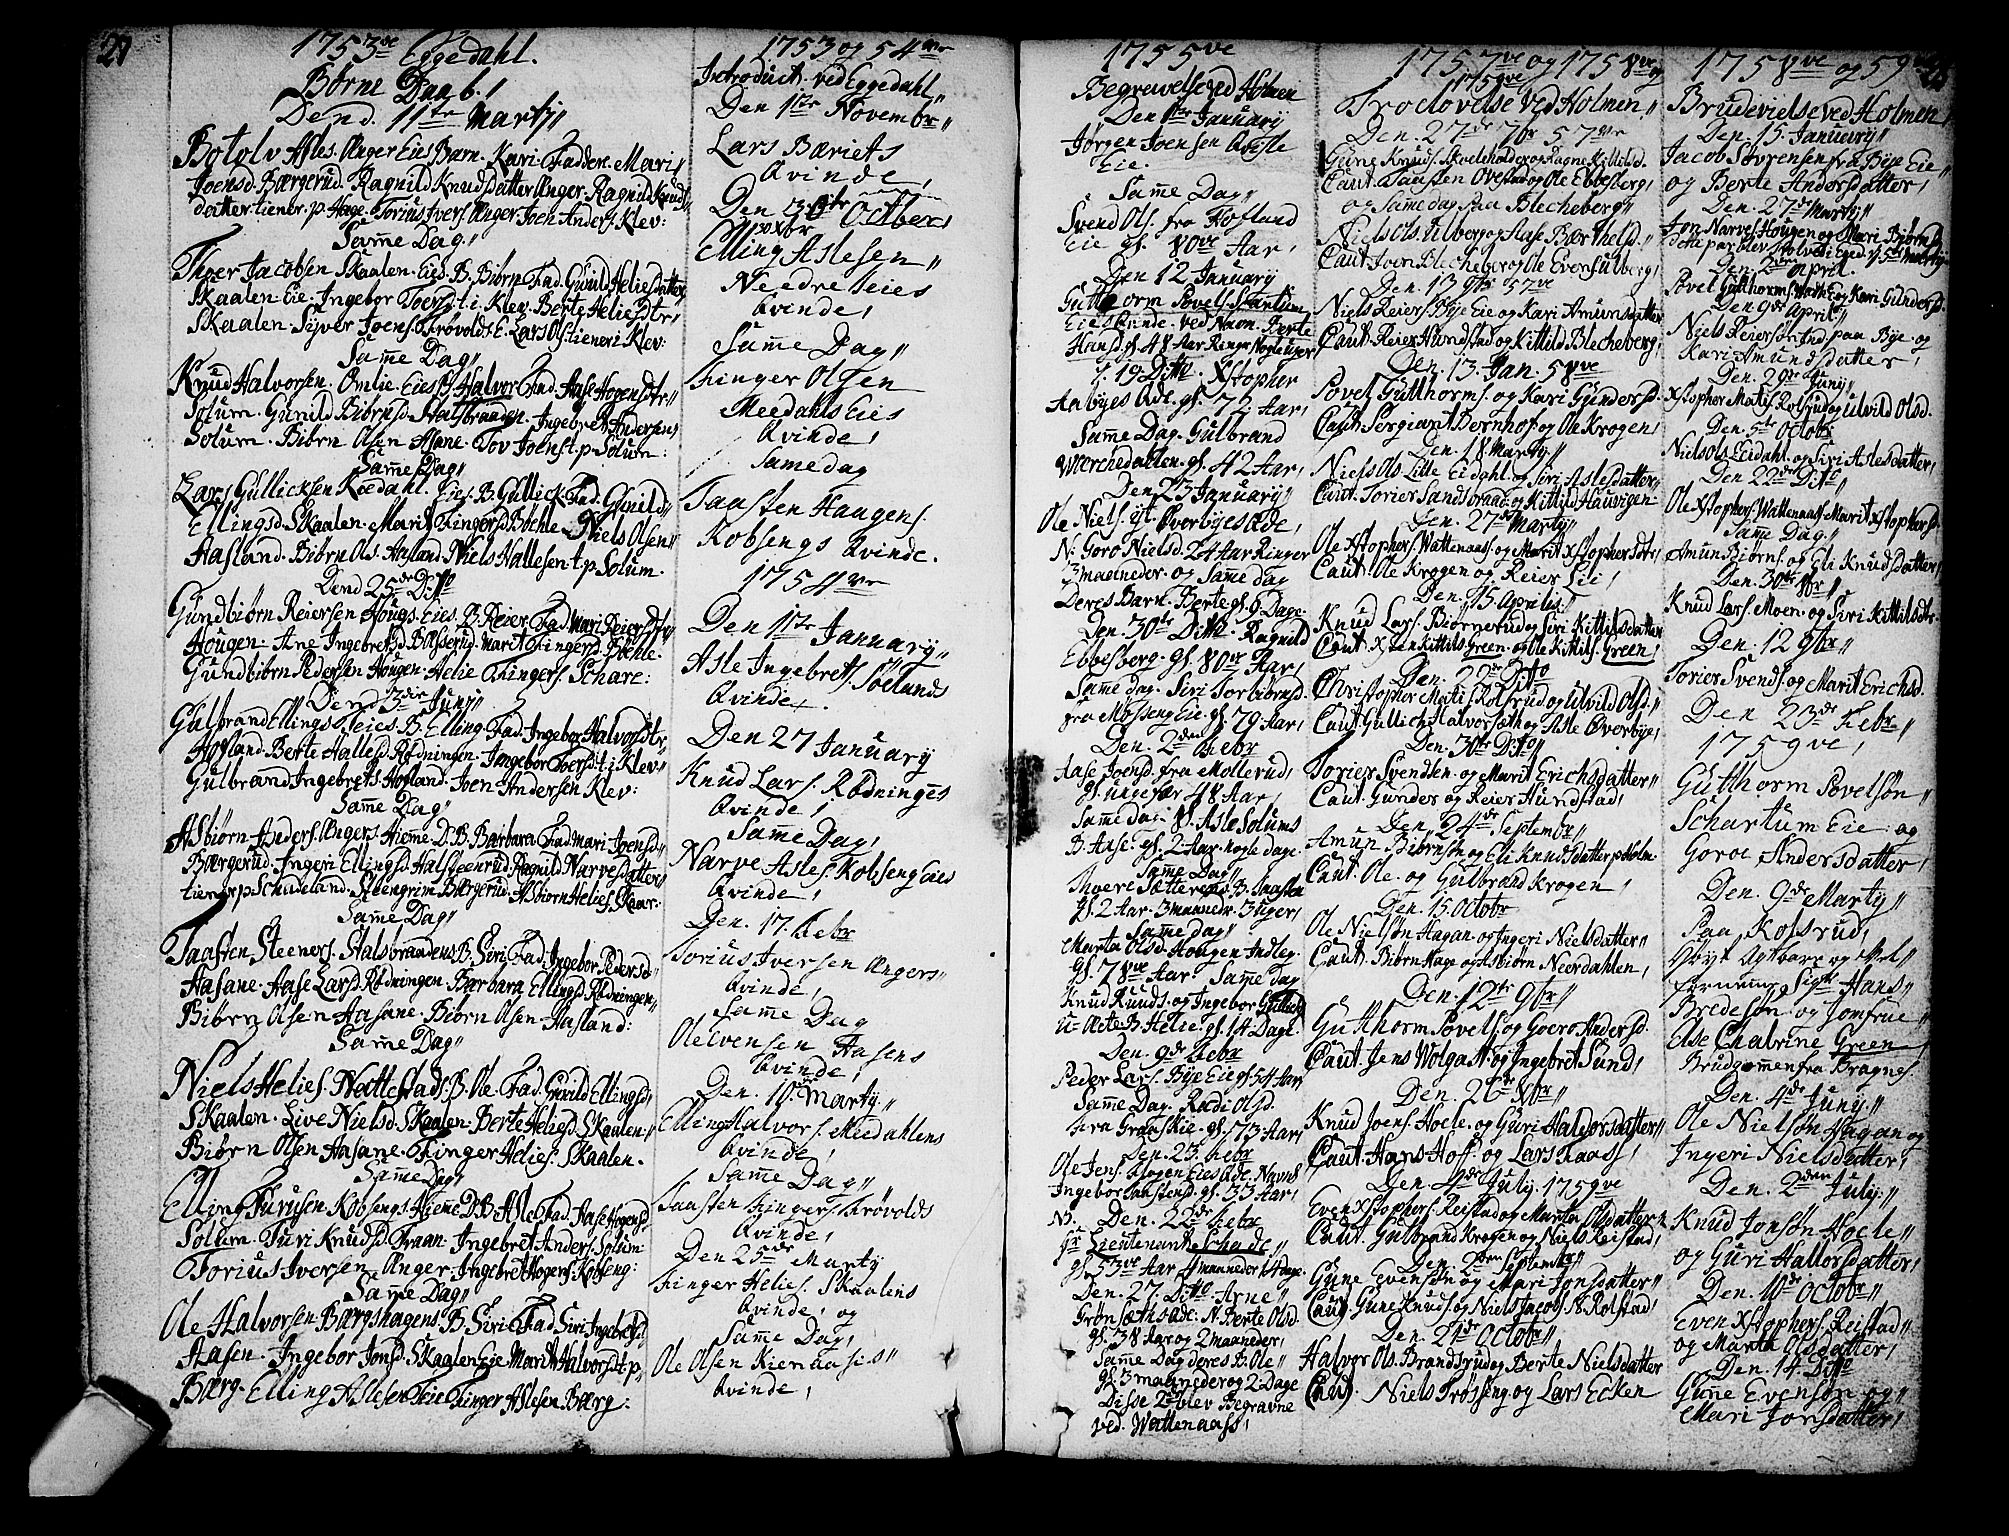 27
1753ve Eggedahl.
Børne Daab.
Dend. 11te Martij
Botolv Asles. Anger Eies Barn. Kari. Faddere. Mari
Joensd. Bærgerud. Ragnild Knudsdatter Anger. Ragnild Knuds
datter tiener. p. Hage. Torius Ivers. Anger Joen Anders. Klev:
Same Dag
Thoer Jacobsen Skaalen. Eies. B. Biørn. Fad. Gunild Heliesdatter
Skaalen. Eie. Ingebor Toersd. t. i Klev. Berte Heliesdtr
Skaalen. Syver Joens. Trøvolds E. Lars Ols. tiener i Klev:
Same Dag
Knud Halvorsen. Omlie. Eies B. Halvor Fad. Aase Hogensdtr
Solum. Gunild Biørnsd. Halsbraaten. Ingebret Andersens
Solum. Biørn Olsen Mane. Tov Joens. t. p. Solum:
Same Dag
Lars Gullicksen Koedahl. Eies. B. Gullick. Fad. Gunild
Ellingsd. Skaalen. Marit Fingersd. Bøehle. Niels Olsen
Aasland. Biørn Ols. Aasland. Niels Hallesen. t. p. Solum.
Dend 25de Ditto
Gundbiørn Reiersen Hougs. Eies. B. Reier. Fad. Mari Reiersdtr
Hougen. Ane Ingebretsd. Marit Fingersd. Bøehle.
Gundbiørn Pedersen Hougen. Helie Fingers. Schare:
Dend 3die Junij
Gulbrand Ellings. Eies. B. Elling. Fad. Ingebor Halvorsdtr
Hofland. Berte Hallesd. Rødningen. Ingebor Toersd. t. i Klev
Gulbrand Ingebrets. Hofland. Joen Andersen Klev:
Same Dag
Asbiørn Anders. Angers Hieme D. B. Barbara Fad. Mari Joensd
Bærgerud. Ingeri Ellingsd. Halsteenrud. Ragnild Narvesdatter
tiener p. Schadeland. Stengrim Bærgerud. Asbiørn Helies. Skaar.
Same Dag
Taasten Steeners. Halsbraadens B. Siri Fad. Ingebor Pedersd
Aasane. Aase Larsd. Rødningen. Barbara Ellingsd. Rødningen
Biørn Olsen Aasane. Biørn Olsen Aasland:
Same Dag
Niels Helies. Nattestads. B. Ole. Fad. Gunild Ellingsd
Skaalen. Live Nielsd. Skaalen. Berte Heliesd. Skaalen
Biørn Olsen Aasane. Finger Helies. Skaalen.
Same Dag
Elling Furusen Kobsengs Hieme D. B. Asle Fad. Aase Hogensd
Solum. Turi Knudsd. Fraan. Ingebret Anders. Solum:
Torius Iversen Anger. Ingebret Hogens. Kobseng:
Same Dag
Ole Halvorsen Bærgshagens. B. Siri Fad. Siri Ingebretsd
Aasen. Ingebor Jonsd. Skaalen Eie. Marit Halvorsd. t. p
Bærg. Elling Aslesen Teie. Finger Aslesen. Bærg:
1753 og 54
Introduct. ved Eggedahl
Den 1te Novembr
Lars Bæriets
Qvinde,
Den 30te Octber
Elling Aslesen
Needre Teies
Qvinde,
Same Dag
Finger Olsen
Meedahls Eies
Qvinde,
Same dag
Taasten Haugens.
Kobsengs Qvinde.
1754ve
Den 1te January
Asle Ingebrets. Søelands
Qvinde
Den 27 January
Knud Lars. Rødninges
Qvinde,
Same Dag,
Narve Asles. Kobseng Eies
Qvinde,
Den. 17. Febr
Torius Iversen Angers
Qvinde,
Same Dag
Ole Evensen Aasens
Qvinde,
Den. 10de Martij
Elling Halvors. Miedahlens
Qvinde,
Same Dag
Taasten Fingers. Trøvolds
Qvinde,
Den 25de Martij
Finger Helies. Skaalens
Qvinde, og
Same Dag,
Ole Olsen Kienaasies
Qvinde,
1755ve
Begravelse ved Holmen
Den 1te January
Jørgen Joensen Qvisle
Eie.
Same Dag
Svend Ols. fra Kofland
Eie gl. 80ve Aar,
Den 12 January
Gutthorm Povels. Skartum
Eie Qvinde. ved Navn. Berte
Hansd. gl. 48 Aar Ringer Nogle uger
d. 19 Ditto. Xstopher
Aabyes Ede. gl. 75 Aar,
Same Dag. Gulbrand
Værchedalten. gl. 42 Aar,
Den 23 January
Ole Niels. yt. Øverbyes Qde,
N: Goro Nielsd. 24 Aar Ringer
3 maaneder. og Same dag
Deres Barn. Berte gl. 6 Dage.
Den. 30te Ditto. Ragnild
Ebbesberg. gl. 80ve Aar,
Same dag. Siri Torbiørnsd.
fra Mosseng Eie. gl. 79 Aar,
Den. 2den Febr
Aase Joensd. fra Mollerud,
gl. ungefær 48 Aar,
Same dag. Asle Solums
B. Aase. gl. 2 Aar. nogle dage
Same Dag
Thoere Sætterens B. Taasten
gl. 2 Aar. 3 maander. 3 uger,
Same dag
Marta Olsd. Hougen Indleg.
gl. 78ve Aar. Same dag
Knud Ruuds. og Ingebor Gullichs
u-ægte B. Helie. gl. 14 Dage.
Den. 9de Febr
Peder Lars. Bye Eie gl. 34 Aar
Same Dag. Randi Olsd.
fra Gran Skie. gl. 73 Aar,
Den. 23. Febr
Ole Jens. Krogen Eies Qde. Navnl
Ingebor Taastensd. gl. 33 Aar,
N. Den. 22de Febr
Hr. Lieutenant Schade
gl. 53ve Aar 4 maaneder 14 dage.
Den. 27. Ditto Arne
Grøn Sæthsqde. N. Berte Olsd.
gl. 38 Aar og 2 maaneder,
Same Dag deres B. Ole
gl. 3 maaneder og 2 Dage
Disse 2de blev Begravne
ved. Wattenaass,
1757ve og 1758ve og
1759ve
Troelovelse ved Holmen
Den. 27de 7br 57ve
Gune Knuds. Skoleholder og Ragne Kittilsd.
Caut. Taasten Ovestad og Ole Ebbesberg,
og Same dag paa Blecheberg
Niels Ols. Ulberg og Aase Bærthelsd.
Caut. Joen Blecheberg og Ole Evens. Ulberg,
Den. 13 9br. 57ve
Niels Reiers. Bye Eie og Kari Amunsdatter
Caut. Reier Hundstad og Kittild Blecheberg,
Den. 13. Jan. 58ve
Povel Gutthorms. og Kari Gundersd.
Caut. Sergiant Bernhof og Ole Krogen,
Den. 18 Marty
Niels Ols. Lille Eiedahl og Siri Aslesdatter
Caut. Torier Sandsbraad. og Kittild Hauvigen
Den. 27de Marty
Ole Xstophers. Wattenaas og Marit Xstophersdtr,
Caut. Ole Krogen og Reier Eie,
Den. 15 Aprilis
Knud Lars. Biørnerud og Siri Kittilsdatter
Caut. Xsten Kittils. Green. og Ole Kittils. Green,
Den. 22de Ditto
Christopher Matis. Rolsrud og Ulvild Olsd.
Caut. Gullich Halvors. Sæth og Asle Øverbye,
Den. 30te Ditto
Torier Svendsen. og Marit Erichsdatter
Caut. Gunder og Reier Hundstad,
Den. 24de Septembr
Amun Biørnsøn og Eli Knudsdatter p. Holm
Caut. Ole. og Gulbrand Krogen,
Den. 15. Octobr
Ole Nielsøn Hagan og Ingeri Nielsdatter
Caut. Biørn Hage og Asbiørn Neerdahlen,
Den. 12te 9br
Gutthorm Povels. og Goero Andersd.
Caut. Jens Wolgast og Ingebret Sund,
Den. 26de Xbr
Knud Joens. Hoele. og Guri Halvorsdatter
Caut. Hans Hoff. og Lars Kaass,
Den. 4de July. 1759ve
Even Xstophers. Reistad og Marta Olsdatter
Caut. Gulbrand Krogen og Niels Reistad,
Den. 2den Septembr
Gune Evensøn og Mari Jonsdatter
Caut. Gune Knuds. og Niels Jacobs. N. Rolstad,
Den. 21de Octobr
Halvor Ols. Brandsrud og Berte Nielsdatter
Caut. Niels Frøsseng og Lars Ecken
28
1758ve og 59ve
Brudevielse ved Holmen
Den. 15. January
Jacob Sørensen fra Bye Eie
og Berte Andersdatter,
Den. 27de Marty
Jon Narves. Hougen og Mari Biørnsd.
Den. 2den April.
Povel Gutthorms. og Kari Gundersd.
Den. 9de April
Niels Reiersøn Ind paa Bye. og
Kari Amundsdatter,
Den. 29de Juny
Xstopher Matis. Rolsrud og Ulvild Olsd.
Den. 5te Octobr
Niels Ols. Eiedahl. og Siri Aslesdatter,
Den. 22de Ditto
Ole Xstophers. Wattenaas. Marit Xstophersd.
Same Dag
Amun Biørns. og Eli Knudsdatter,
Den. 30te 8br
Knud Lars. Moen. og Siri Kittilsdtr.
Den. 12 9br
Torier Svends. og Marit Erichsd.
Den 23de Febr
1759ve,
Gutthorm Povelsøn
Schartum Eie og
Goroe Andersdatter,
Den. 9de Marty
Paa Kolsrud,
Høyt Agtbare og Vel
fornemme Sigr Hans
Bredesøn. og Jomfrue
Else Chatrine Green
Brudgommen fra Bragnes.
Den. 4de Juny
Ole Nielsøn Hagan og
Ingeri Nielsdatter,
Den. 2den July
Knud Jonsøn Hoele
og Guri Hallorsdatter,
Den. 10de Octobr
Even Xstophers. Reistad
og Martha Olsdatter,
Den. 14. Ditto
Gune Evensøn og
Mari Jonsdatter,